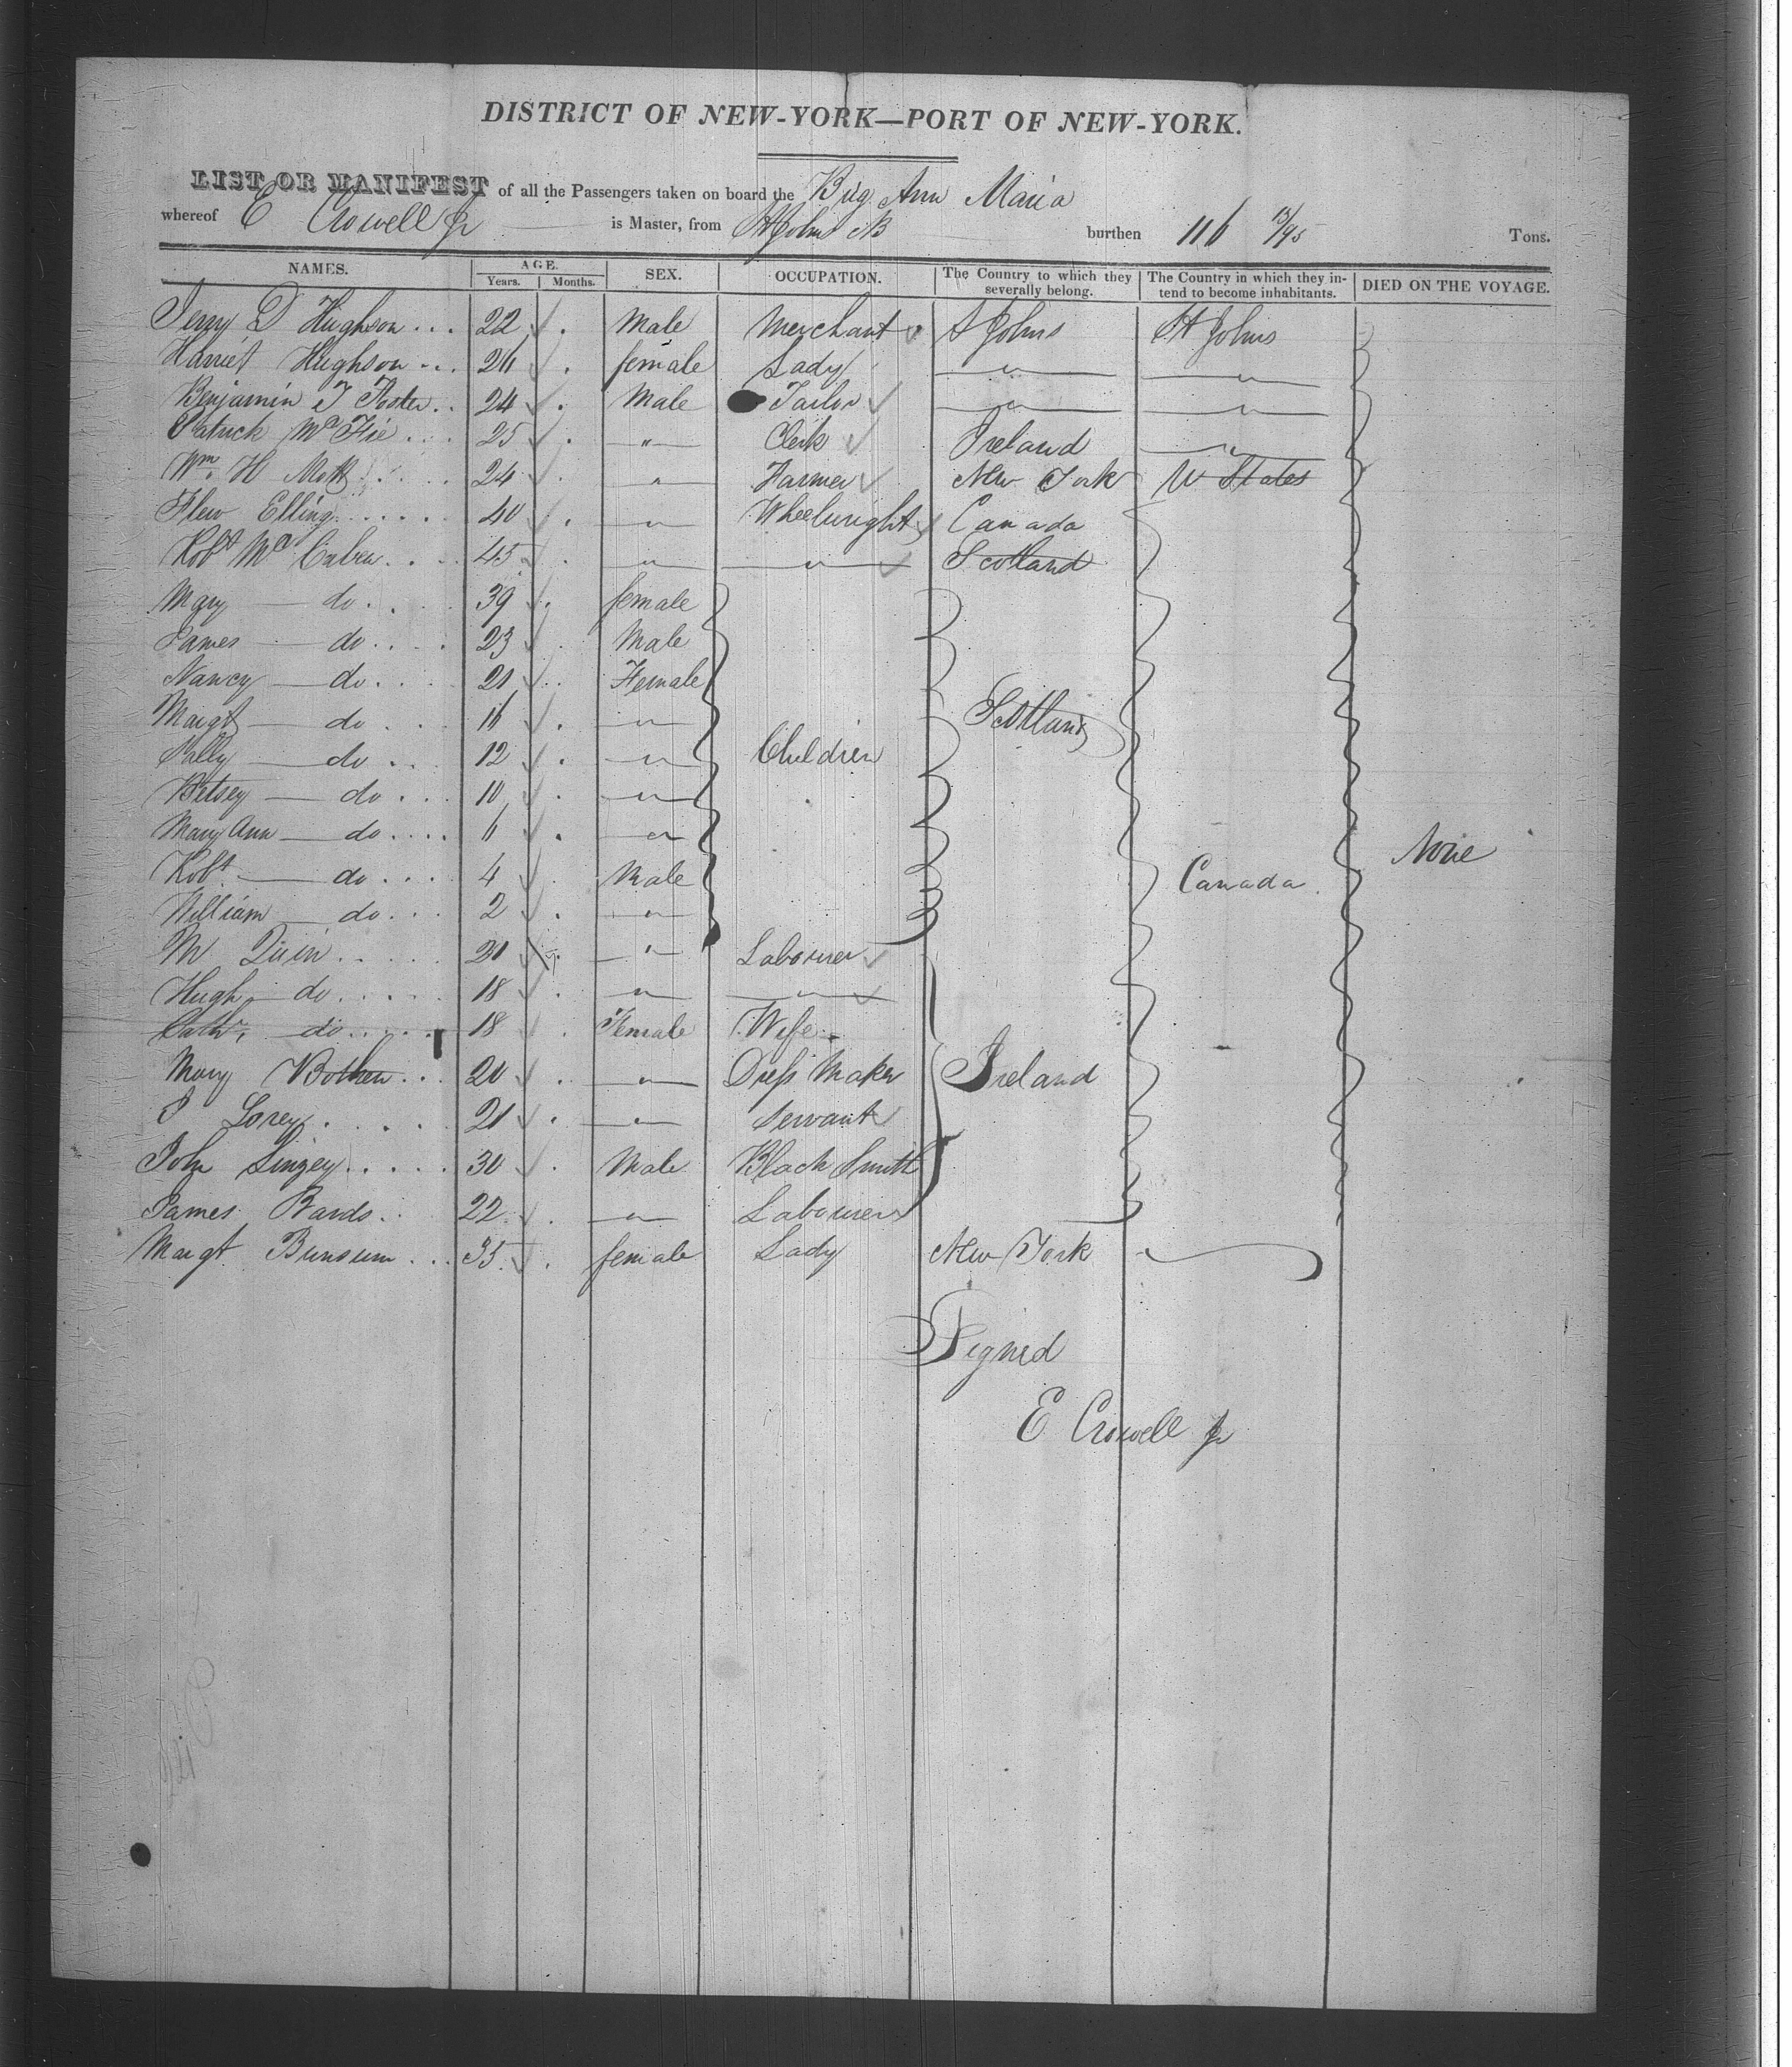 DISTRICT OF NEW-YORK—PORT OF NEW-YORK.
LIST OR MANIFEST of all the Passengers taken on board the Brig Ann Maria
whereof E Crowell Jr is Master, from St Johns NB burthen 116 13/95 Tons.
NAMES. AGE. Years. Months. SEX. OCCUPATION. The Country to which they severally belong. The Country in which they intend to become inhabitants. DIED ON THE VOYAGE.
Jerry D Hughson 22 Male Merchant St Johns St Johns
Harriet Hughson 26 female Lady " "
Benjamin T Foster 24 Male Tailor " "
Patrick 25 " Clerk Ireland "
Wm H Mott 24 " Farmer New York U States
Elling 40 " Wheelwright Canada
Robt Mc 45 " " Scotland
Mary do 39 female
James do 23 Male
Nancy do 21 Female
Margt do 16 " Scotland
Sally do 12 " Children
Betsey do 10 "
Mary Ann do 6 "
Robt do 4 Male Canada None
William do 2 "
M Quin 20 " Labourer
Hugh do 18 " "
Cath do 18 Female Wife
Mary 20 " Dress Maker Ireland
21 " Servant
John Linzey 30 Male Black Smith
James Bards 22 " Labourer
Margt Bunsum 35 female Lady New York
Signed
E Crowell Jr